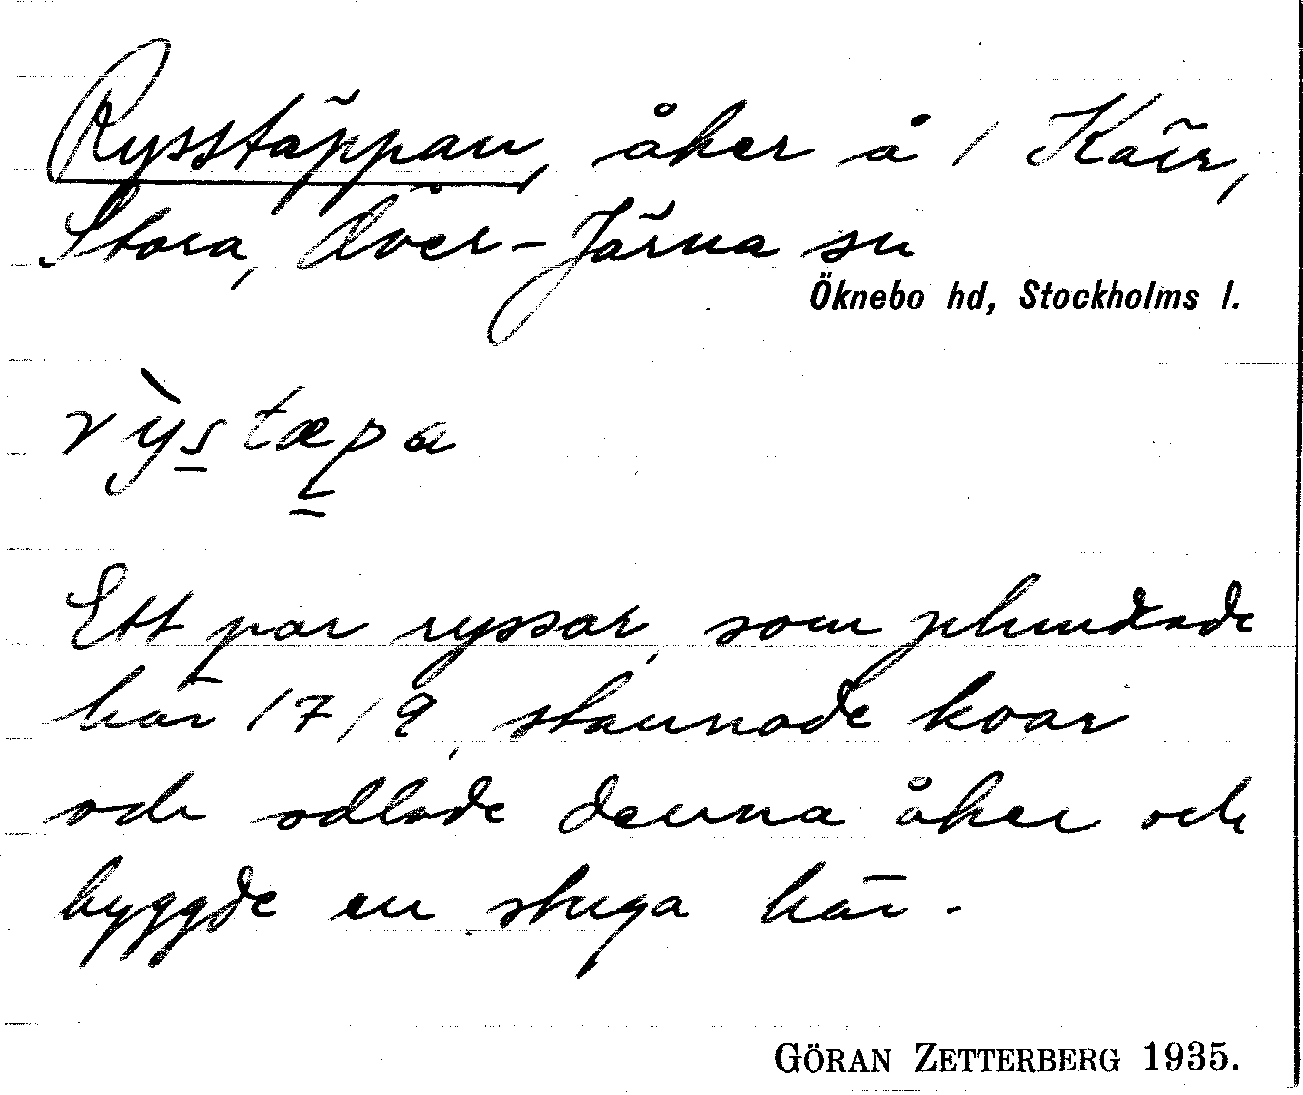 Rysstäppan, åker å 1 Kärr,
Stora, Över-Järna sn
Öknebo hd, Stockholms l.
rỳstæpa
Ett par ryssar, som plundrade
här 1719, stannade kvar
och odlade denna åker och
byggde en stuga här.
GÖRAN ZETTERBERG 1935.